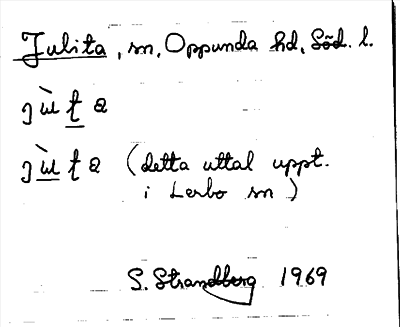 Julita, sn, Oppunda hd, Söd. l.
jùta
jùta (detta uttal uppt.
i Lerbo sn)
S. Strandberg 1969